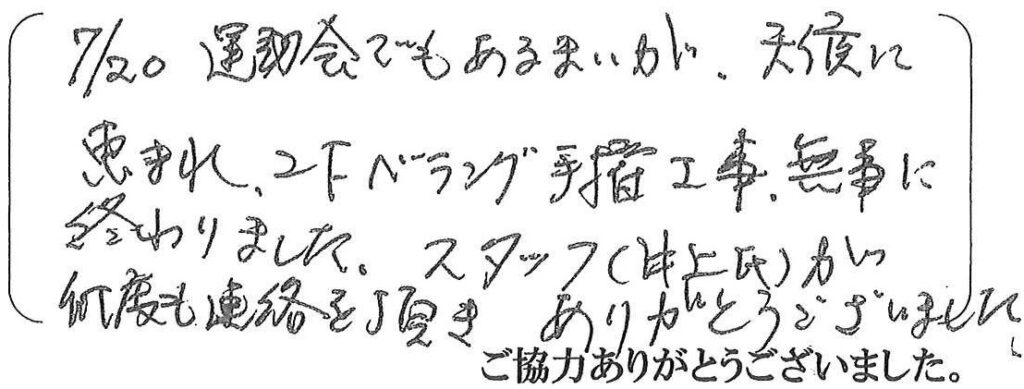 7/20 運動会でもあるまいが、天候に
恵まれ、2F ベランダ 手摺工事、無事に
終わりました。スタッフ(井上氏)が
何度も連絡を頂き ありがとうございました。
ご協力ありがとうございました。